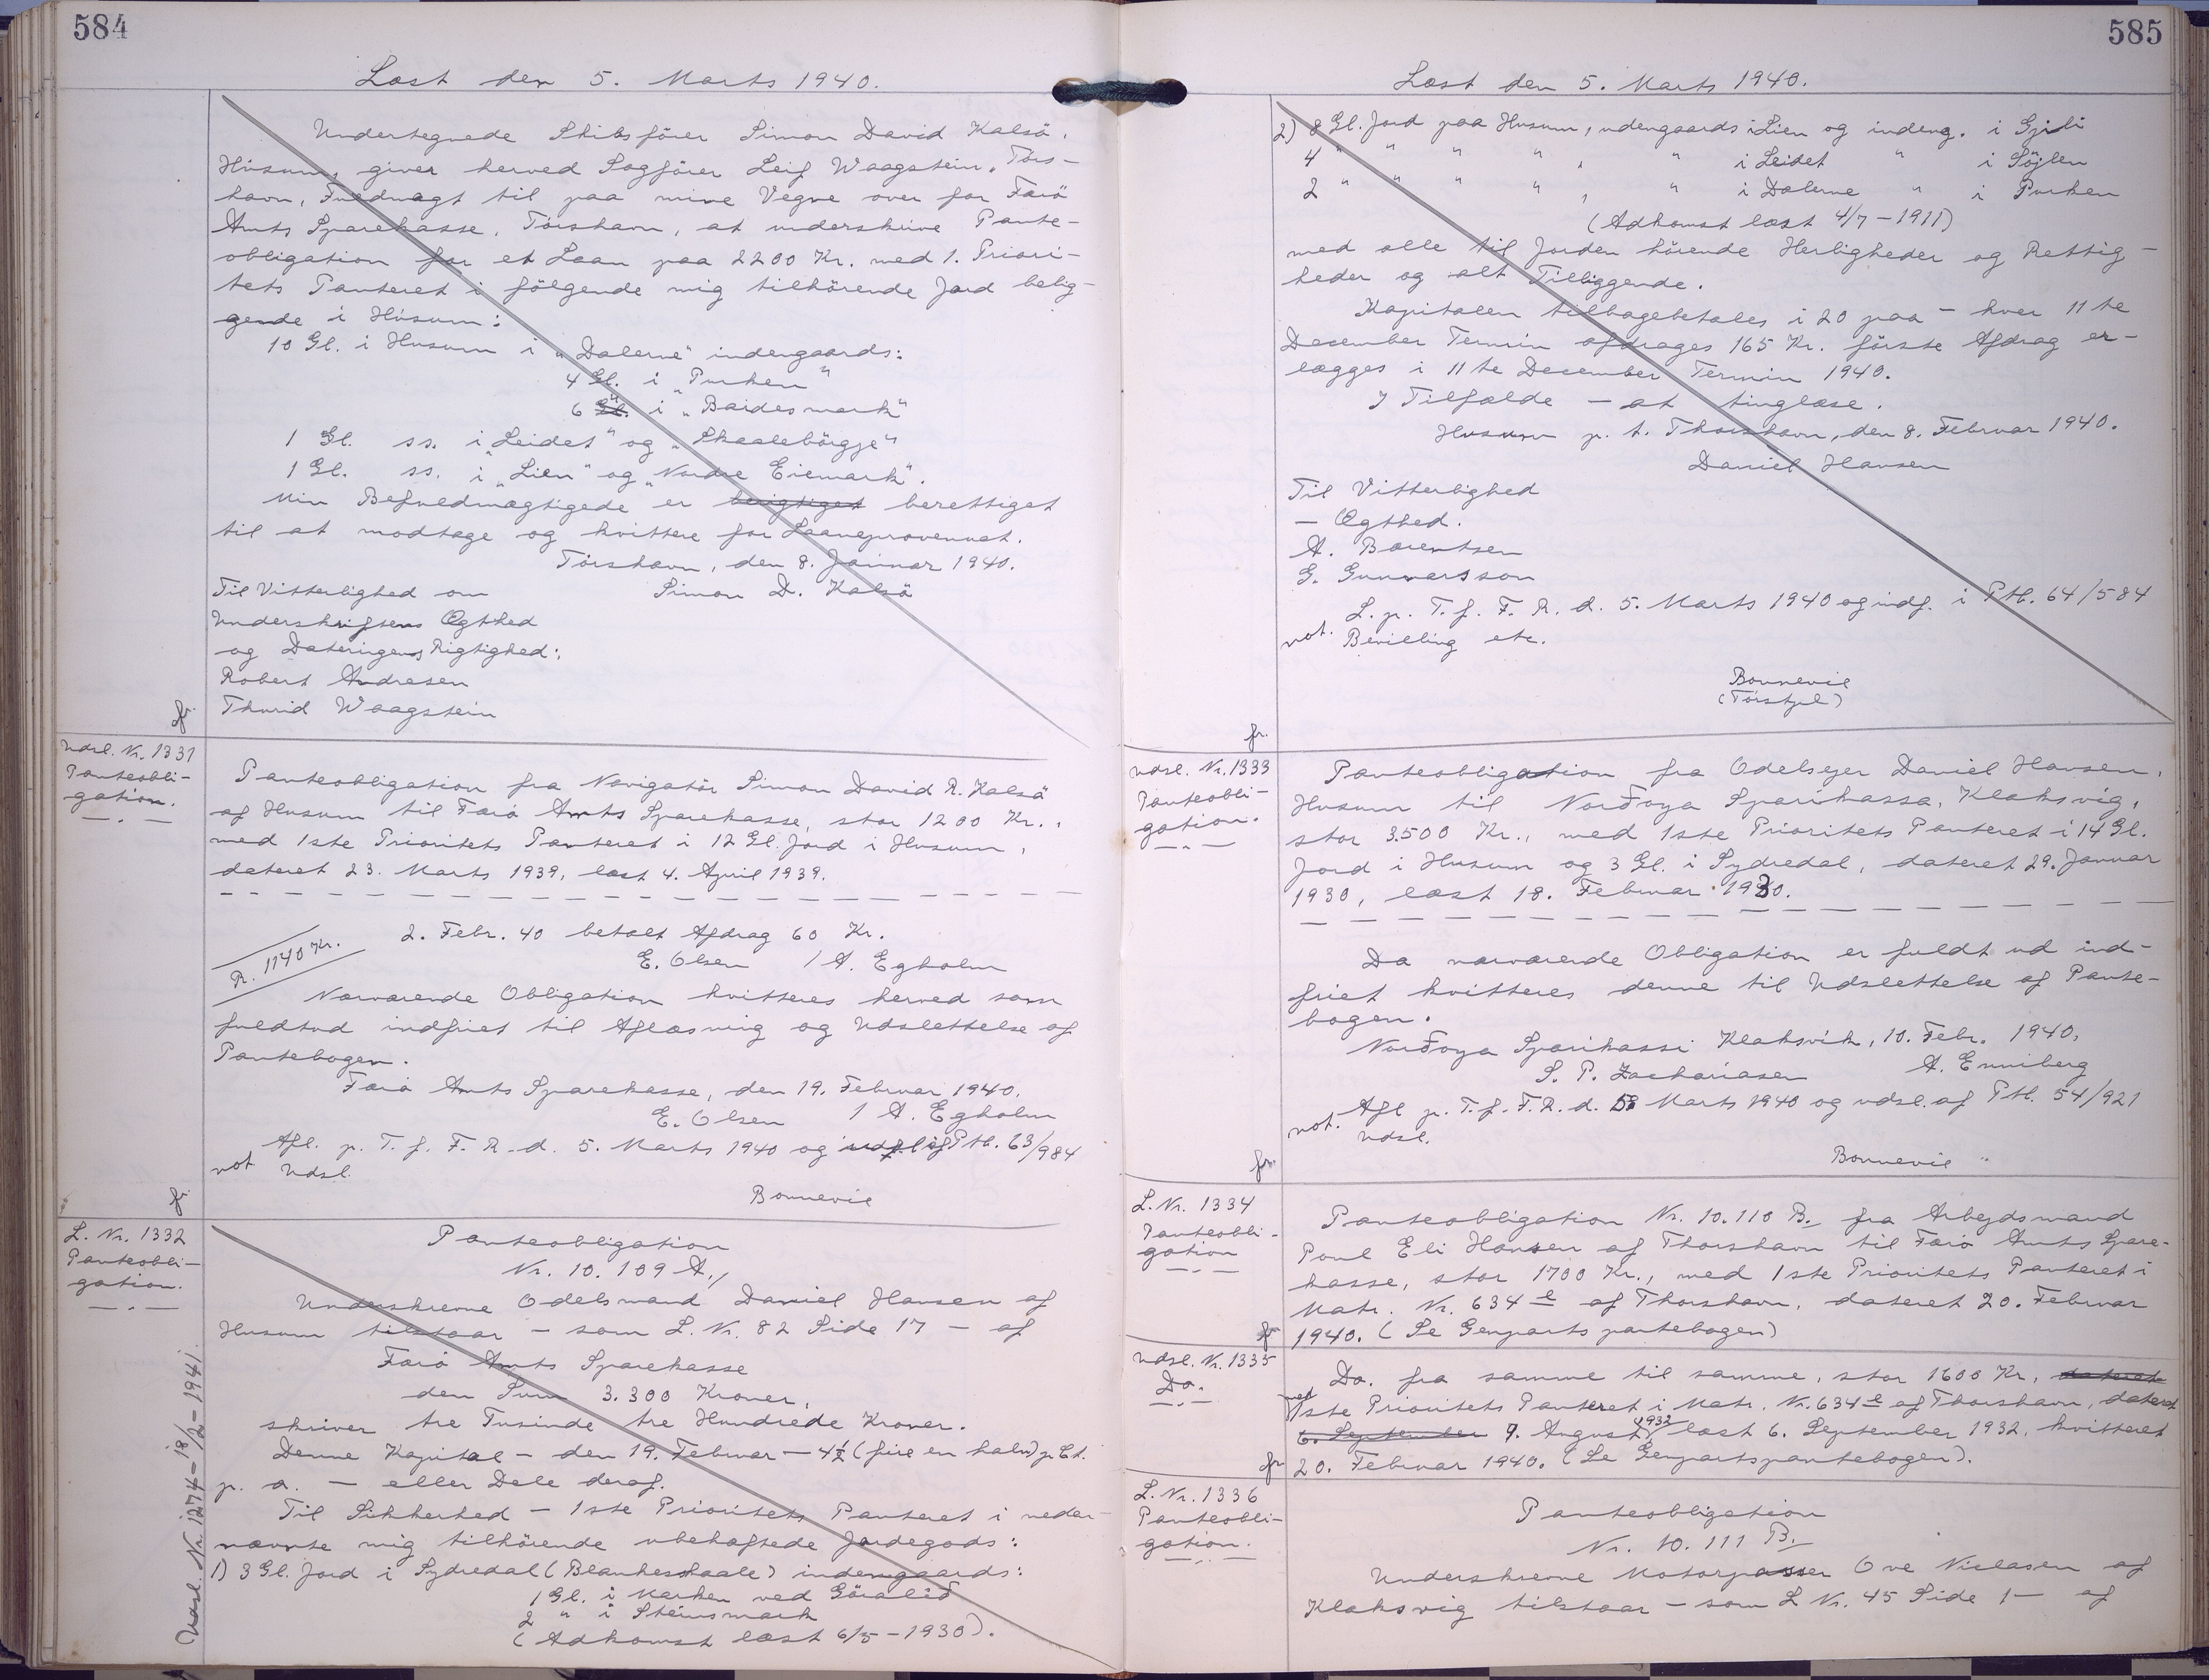 584
Læst den 5. Marts 1940.
Undertegnede Skibsfører Simon David Kalsö,
Húsum, giver herved Sagfører Leif Waagstein, Tórs-
havn, Fuldmagt til paa mine Vegne over for Færö
Amts Sparekasse, Tórshavn, at underskrive Pante-
obligation for et Laan paa 2200 Kr. med 1. Priori-
tets Panteret i følgende mig tilhörende Jord belig-
gende i Húsum:
10 Gl. i Husum i "Dalerne" indengaards:
4 Gl. i "Purken"
6 Gl. i "Baidesmark"
1 Gl. ss. i "Leidet" og "Skaalebörgje"
1 Gl. ss. i "Lien" og "Nordre Eiemark".
Min Befuldmægtigede er berettiget
til at modtage og kvittere for Laaneprovenuet.
Tórshavn, den 8. Januar 1940.
Til Vitterlighed om Simon D. Kalsö
Underskriftens Ægthed
og Dateringens Rigtighed:
Robert Andresen
Thurid Waagstein
fr.
Udsl. Nr. 1331
Panteobli-
gation.
Panteobligation fra Navigatör Simon David R. Kalsö
af Husum til Færö Amts Sparekasse, stor 1200 Kr.,
med 1ste Prioritets Panteret i 12 Gl. Jord i Husum,
dateret 23. Marts 1939, læst 4. April 1939.
2. Febr. 40 betalt Afdrag 60 Kr.
R. 1140 Kr.
E. Olsen / A. Egholm
Nærværende Obligation kvitteres herved som
fuldtud indfriet til Aflæsning og Udslettelse af
Pantebogen.
Færö Amts Sparekasse, den 19. Februar 1940.
E. Olsen / A. Egholm
Afl. p. T. f. F. R. d. 5. Marts 1940 og udsl. af Ptb. 63/984
not Udsl.
Bonnevie
fr.
L. Nr. 1332
Panteobli-
gation.
Udsl. Nr. 1274 - 18/12 - 1941.
Panteobligation
Nr. 10.109 A.,
Underskrevne Odelsmand Daniel Hansen af
Husum tilstaar - som L. Nr. 82 Side 17 - af
Færö Amts Sparekasse
den Sum 3.300 Kroner,
skriver tre Tusinde tre Hundrede Kroner.
Denne Kapital - den 19. Februar - 4½ (fire en halv) p Ct.
p. a. - eller Dele deraf.
Til Sikkerhed - 1ste Prioritets Panteret i neden-
nævnte mig tilhörende ubehæftede Jordegods:
1) 3 Gl. Jord i Sydredal (Blankeskaale) indengaards:
1 Gl. i Marken ved Göralid
2 " i Steinsmark
(Adkomst læst 6/5 - 1930).
585
Læst den 5. Marts 1940.
2) 8 Gl. Jord paa Husum, udengaards i Lien og indeng. i Gjili
4 " " " " , " i Leidet " i Söjlen
2 " " " " , " i Dalerne " i Purken
(Adkomst læst 4/7 - 1911)
med alle til Jorden hörende Herligheder og Rettig-
heder og alt Tilliggende.
Kapitalen tilbagebetales i 20 paa - hver 11te
December Termin afdrages 165 Kr. förste Afdrag er-
lægges i 11te December Termin 1940.
I Tilfælde - at tinglæse.
Husum p. t. Thorshavn, den 8. Februar 1940.
Daniel Hansen
Til Vitterlighed
- Ægthed.
A. Barentsen
G. Gunnarsson
L. p. T. f. F. R. d. 5. Marts 1940 og indf. i Ptb. 64/584
not. Bevilling etc.
Bonnevie
fr.
Udsl. Nr. 1333
Panteobli-
gation.
Panteobligation fra Odelsejer Daniel Hansen,
Husum til Norðoya Sparikassa, Klaksvig,
stor 3.500 Kr., med 1ste Prioritets Panteret i 14 Gl.
Jord i Husum og 3 Gl. i Sydredal, dateret 29. Januar
1930, læst 18. Februar 1930.
Da nærværende Obligation er fuldt ud ind-
friet kvitteres denne til Udslettelse af Pante-
bogen.
Norðoya Sparikassi Klaksvik, 10. Febr. 1940.
S. P. Zachariasen A. Enniberg
Afl p. T. f. F. R. d. 5 Marts 1940 og udsl. af Ptb. 54/921
not. Udsl.
Bonnevie
fr.
L. Nr. 1334
Panteobli-
gation
Panteobligation Nr. 10.110 B. fra Arbejdsmand
Poul Eli Hansen af Thorshavn til Færö Amts Spare-
kasse, stor 1700 Kr., med 1ste Prioritets Panteret i
Matr. Nr. 634 e af Thorshavn, dateret 20. Februar
1940. (Se Genpartspantebogen)
fr
Udsl. Nr. 1335
Do.
Do. fra samme til samme, stor 1600 Kr, dateret
med 1ste Prioritets Panteret i Matr. Nr. 634 e af Thorshavn, dateret
6. September 9. August 1932 læst 6. September 1932, kvitteret
20. Februar 1940. (Se Genpartspantebogen).
fr
L. Nr. 1336
Panteobli-
gation.
Panteobligation
Nr. 10.111 B.
Underskrevne Motorpasser Ove Niclasen af
Klaksvig tilstaar - som L Nr. 45 Side 1 - af